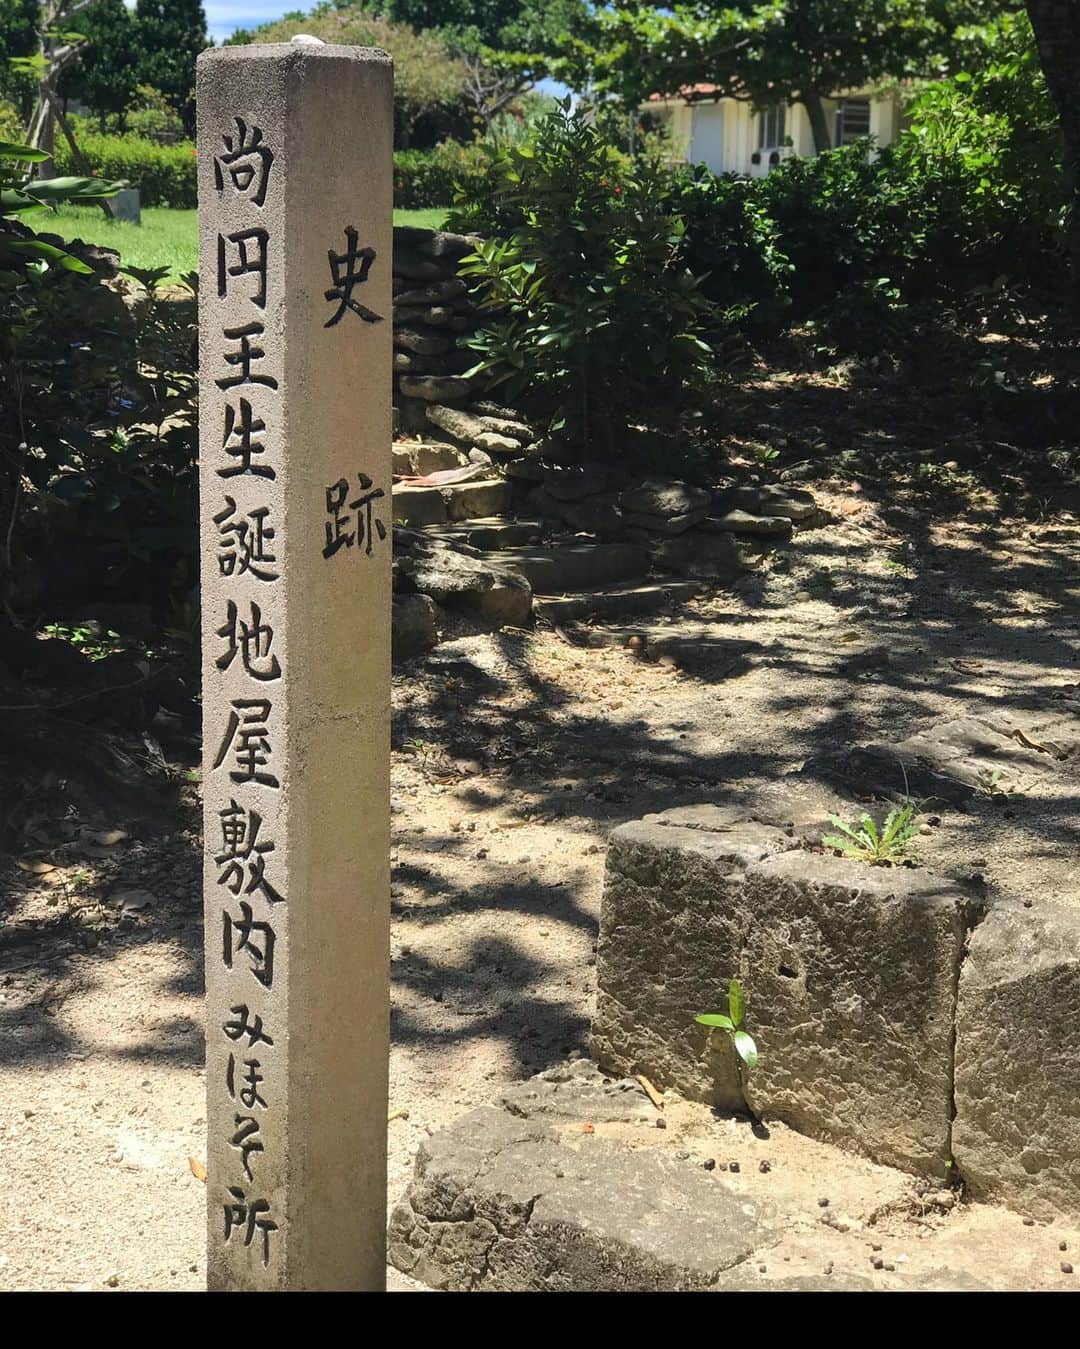 史跡
尚円王生誕地屋敷内みほそ所